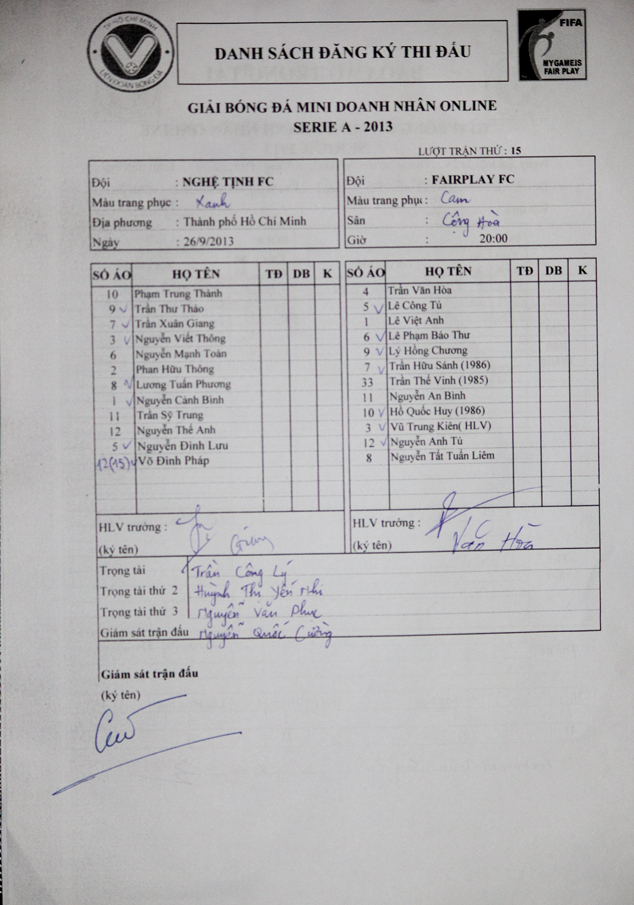 TP HỒ CHÍ MINH
LIÊN ĐOÀN BÓNG ĐÁ
DANH SÁCH ĐĂNG KÝ THI ĐẤU
FIFA
MY GAME IS
FAIR PLAY
GIẢI BÓNG ĐÁ MINI DOANH NHÂN ONLINE
SERIE A - 2013
LƯỢT TRẬN THỨ : 15
Đội : NGHỆ TỊNH FC
Màu trang phục : Xanh
Địa phương : Thành phố Hồ Chí Minh
Ngày : 26/9/2013
Đội : FAIRPLAY FC
Màu trang phục : Cam
Sân : Cộng Hòa
Giờ : 20:00
SỐ ÁO HỌ TÊN TĐ DB K
10 Phạm Trung Thành
9 ✓ Trần Thư Thảo
7 ✓ Trần Xuân Giang
3 ✓ Nguyễn Viết Thông
6 Nguyễn Mạnh Toàn
2 Phan Hữu Thông
8 ✓ Lương Tuấn Phương
1 ✓ Nguyễn Cảnh Bình
11 Trần Sỹ Trung
12 Nguyễn Thế Anh
5 ✓ Nguyễn Đình Lưu
12(15) ✓ Võ Đình Pháp
HLV trưởng :
(ký tên) Giang
SỐ ÁO HỌ TÊN TĐ DB K
4 Trần Văn Hòa
5 ✓ Lê Công Tú
1 Lê Việt Anh
6 ✓ Lê Phạm Bảo Thư
9 ✓ Lý Hồng Chương
7 ✓ Trần Hữu Sánh (1986)
33 Trần Thế Vinh (1985)
11 Nguyễn An Bình
10 ✓ Hồ Quốc Huy (1986)
3 ✓ Vũ Trung Kiên( HLV)
12 ✓ Nguyễn Anh Tú
8 Nguyễn Tất Tuấn Liêm
HLV trưởng :
(ký tên) Văn Hòa
Trọng tài Trần Công Lý
Trọng tài thứ 2 Huỳnh Thị Yến Nhi
Trọng tài thứ 3 Nguyễn Văn Phục
Giám sát trận đấu Nguyễn Quốc Cường
Giám sát trận đấu
(ký tên)